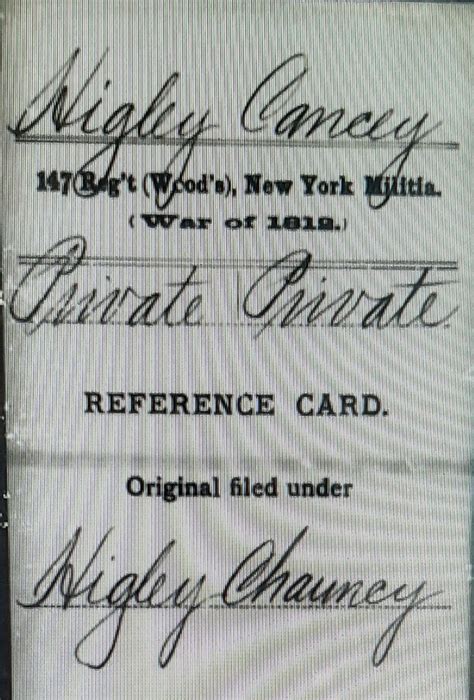 Higley Cancey
147 Reg't (Wood's), New York Militia.
(War of 1812.)
Private Private
REFERENCE CARD.
Original filed under
Higley Chauncy